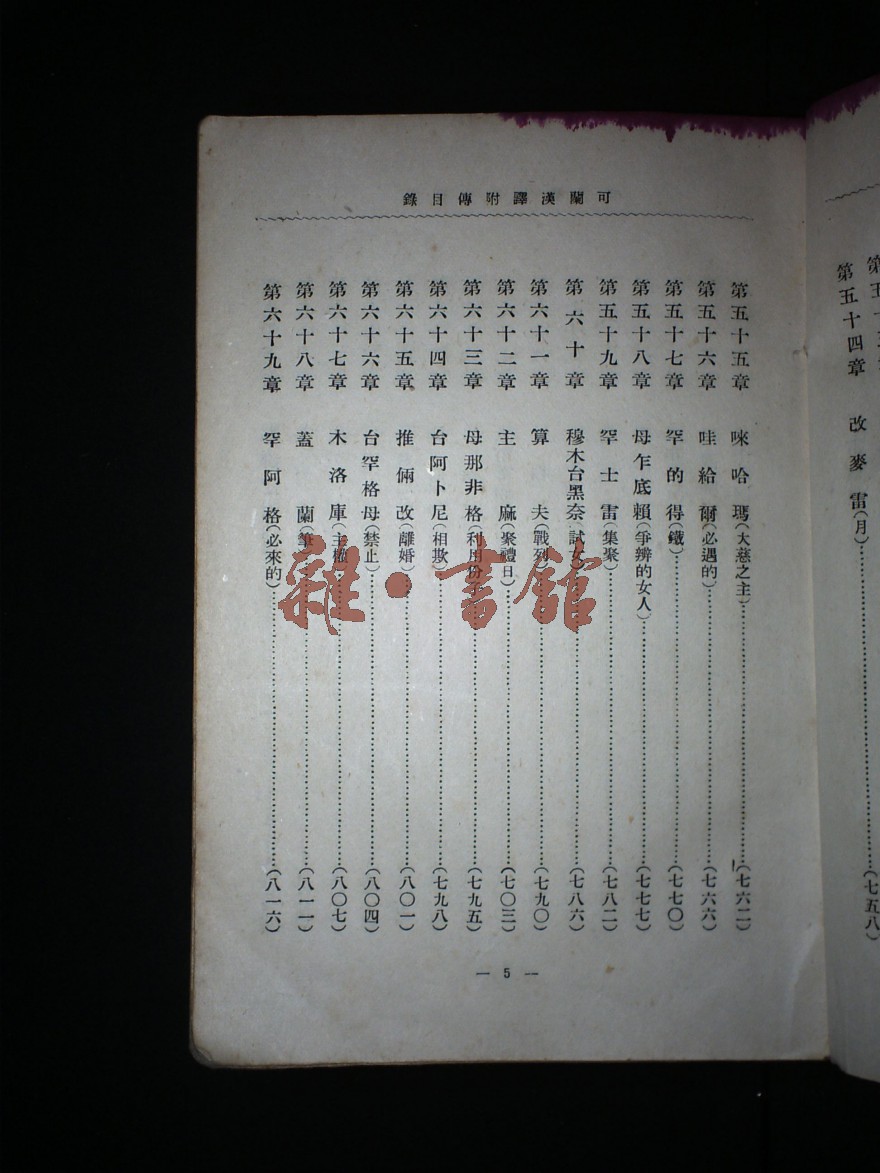 第五十四章 改麥雷(月)……(七五八)
可蘭漢譯附傳目錄
第五十五章 唻哈瑪(大慈之主)……(七六二)
第五十六章 哇給爾(必遇的)……(七六六)
第五十七章 罕的得(鐵)……(七七〇)
第五十八章 母乍底賴(爭辨的女人)……(七七七)
第五十九章 罕士雷(集聚)……(七八二)
第六十章 穆木台黑奈(試女)……(七八六)
第六十一章 算夫(戰列)……(七九〇)
第六十二章 主麻(聚禮日)……(七〇三)
第六十三章 母那非格(利用份……(七九五)
第六十四章 台阿卜尼(相欺)……(七九八)
第六十五章 推倆改(離婚)……(八〇一)
第六十六章 台罕格母(禁止)……(八〇四)
第六十七章 木洛庫(主權)……(八〇七)
第六十八章 蓋蘭(筆)……(八一一)
第六十九章 罕阿格(必來的)……(八一六)
— 5 —
雜·書館